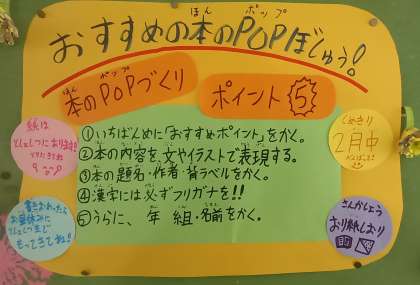 おすすめの本のPOPぼしゅう!
ほん ポップ
本のPOPづくり
ほん ポップ
ポイント5
①いちばんめに「おすすめポイント」をかく。
②本の内容を文やイラストで表現する。
③本の題名・作者・背ラベルをかく。
④漢字には必ずフリガナを!!
⑤うらに、年 組・名前をかく。
紙は
としょしつにあります!
しめきり
2月中
書きおわったら
お昼休みに
としょしつまで
もってきてね!!
さんかしょう
おり紙しおり